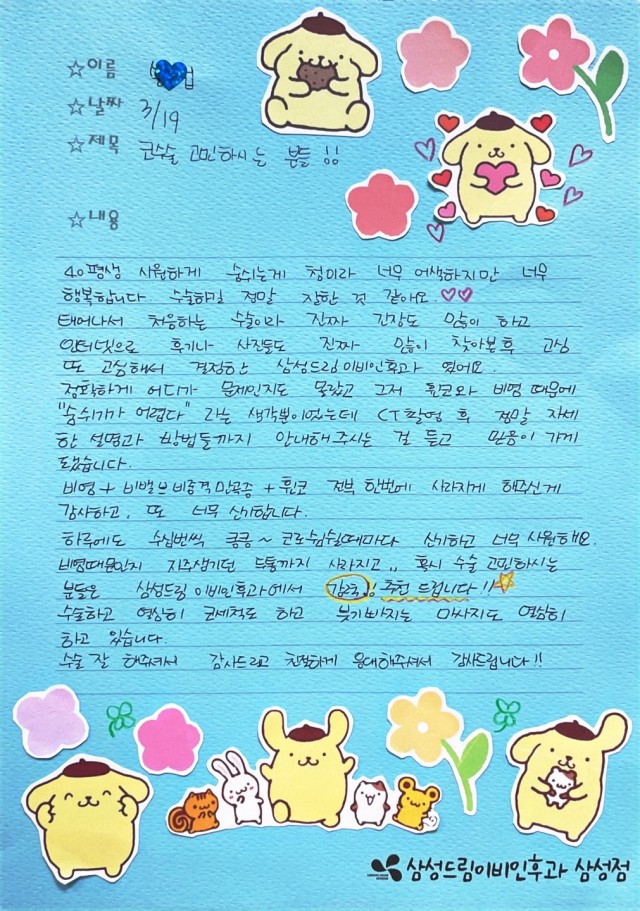 ☆이름
☆날짜 3/19
☆제목 코수술 고민하시는 분들 !!
☆내용
40평생 시원하게 숨쉬는게 첨이라 너무 어색하지만 너무
행복합니다 수술하길 정말 잘한 것 같아요 ♡♡
태어나서 처음하는 수술이라 진짜 긴장도 많이 하고
인터넷으로 후기나 사진들도 진짜 많이 찾아본후 고심
또 고심해서 결정한 삼성드림이비인후과 였어요.
정확하게 어디가 문제인지도 몰랐고 그저 휜코와 비염 때문에
"숨쉬기가 어렵다" 라는 생각뿐이었는데 CT촬영 후 정말 자세
한 설명과 방법들까지 안내해주시는 걸 듣고 믿음이 가게
됐습니다.
비염 + 비밸브 비중격만곡증 + 휜코 전부 한번에 사라지게 해주신게
감사하고, 또 너무 신기합니다.
하루에도 수십번씩 킁킁~ 코로숨쉴때마다 신기하고 너무 시원해요.
비염때문인지 자주생기던 두통까지 사라지고,, 혹시 수술 고민하시는
분들은 삼성드림이비인후과에서 강추!! 추천 드립니다!!☆
수술하고 열심히 코세척도 하고 붓기빠지는 마사지도 열심히
하고 있습니다.
수술 잘 해주셔서 감사드리고 친절하게 응대해주셔서 감사드립니다!!
삼성드림이비인후과 삼성점